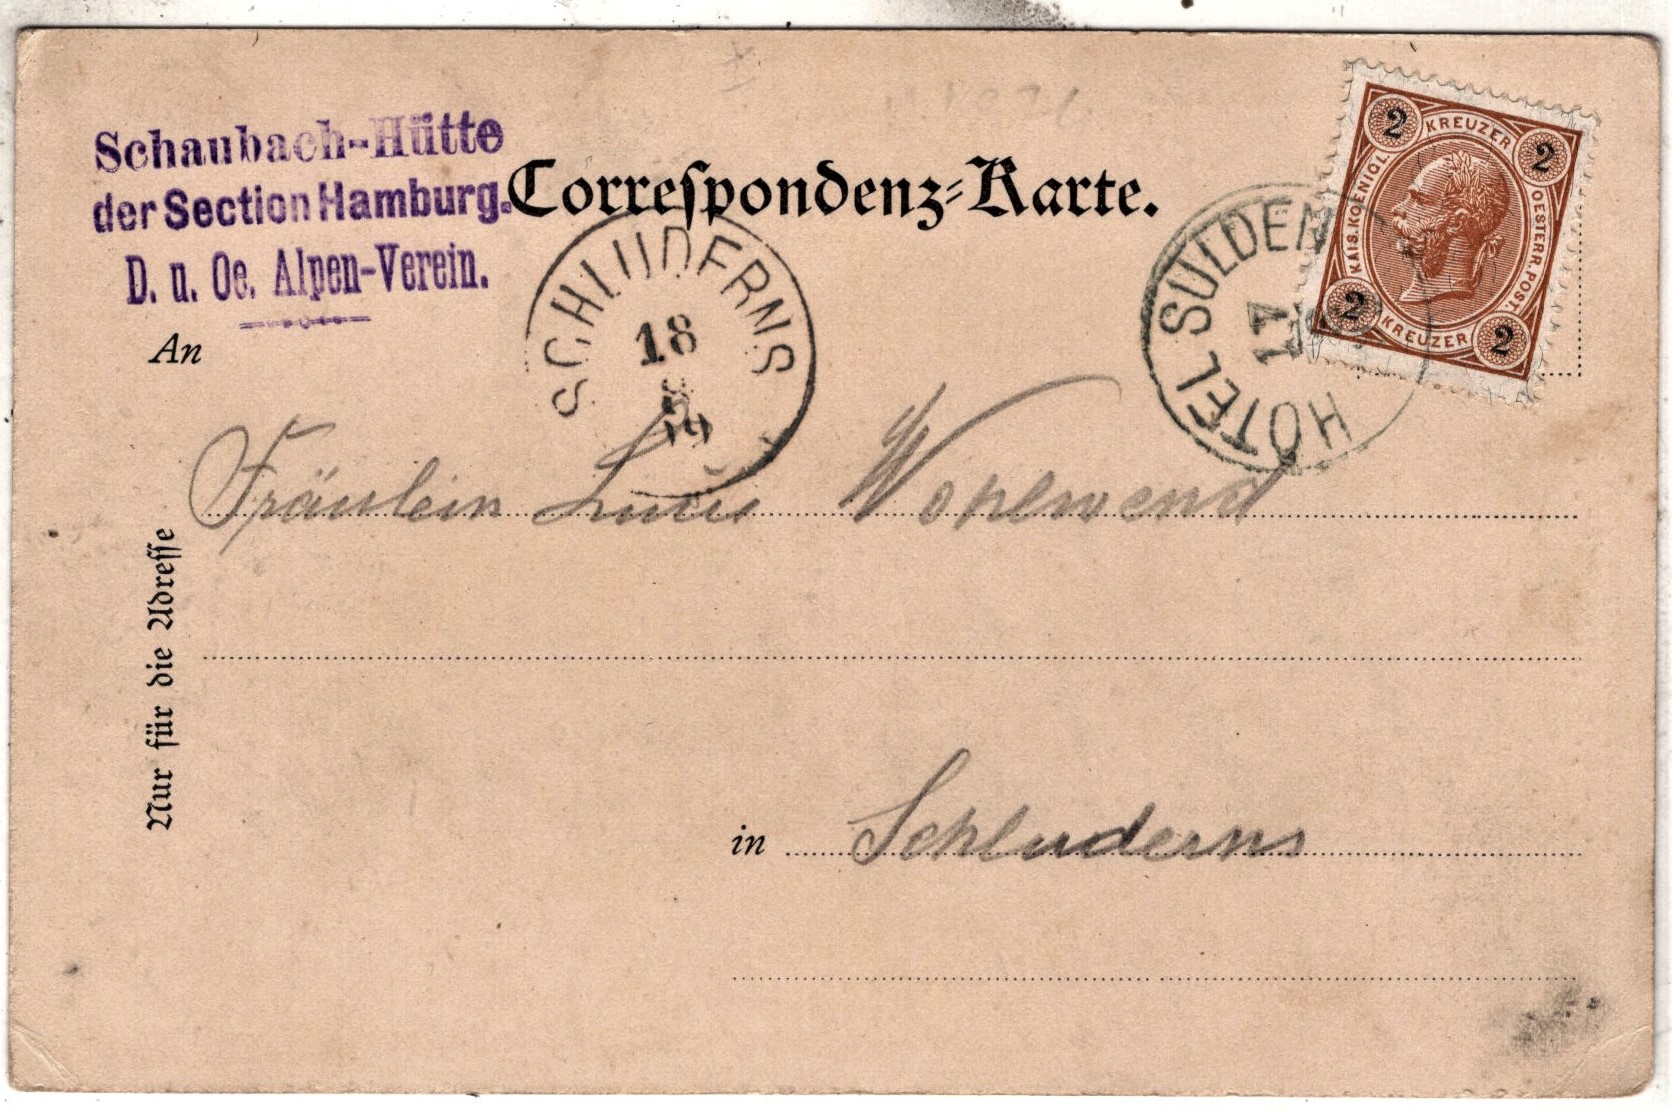 Schaubach-Hütte
der Section Hamburg.
D. u. Oe. Alpen-Verein.
Correspondenz-Karte.
SCHLUDERNS
18
8
HOTEL SULDEN
17
2 KREUZER 2
KAIS. KOENIGL. OESTERR. POST.
2 KREUZER 2
An
Fräulein Wohlwend
Nur für die Adresse
in Schluderns